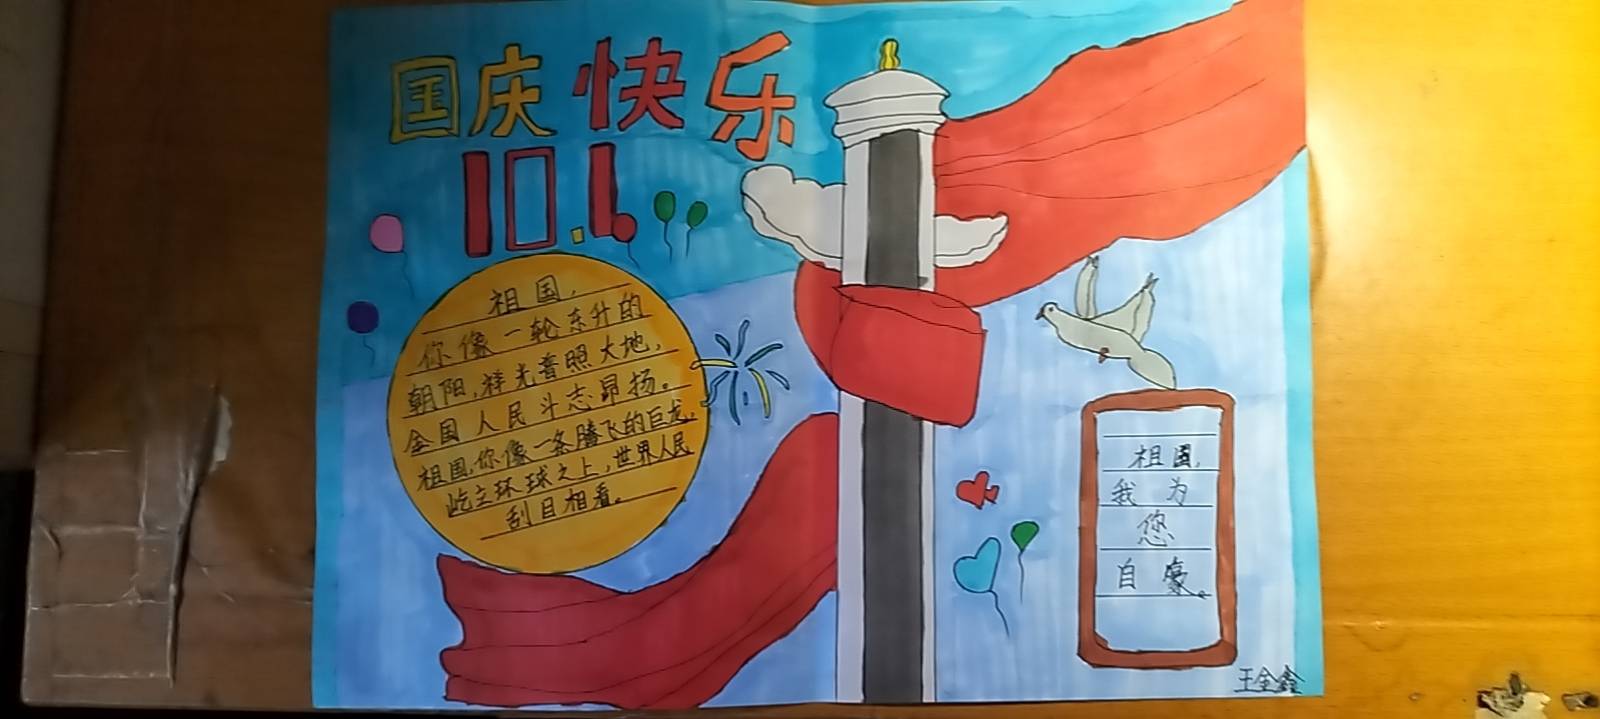 国庆快乐
10.1
祖国，
你像一轮东升的
朝阳，祥光普照大地，
全国人民斗志昂扬。
祖国，你像一条腾飞的巨龙，
屹立环球之上，世界人民
刮目相看。
祖国，
我为
您
自豪。
王全鑫